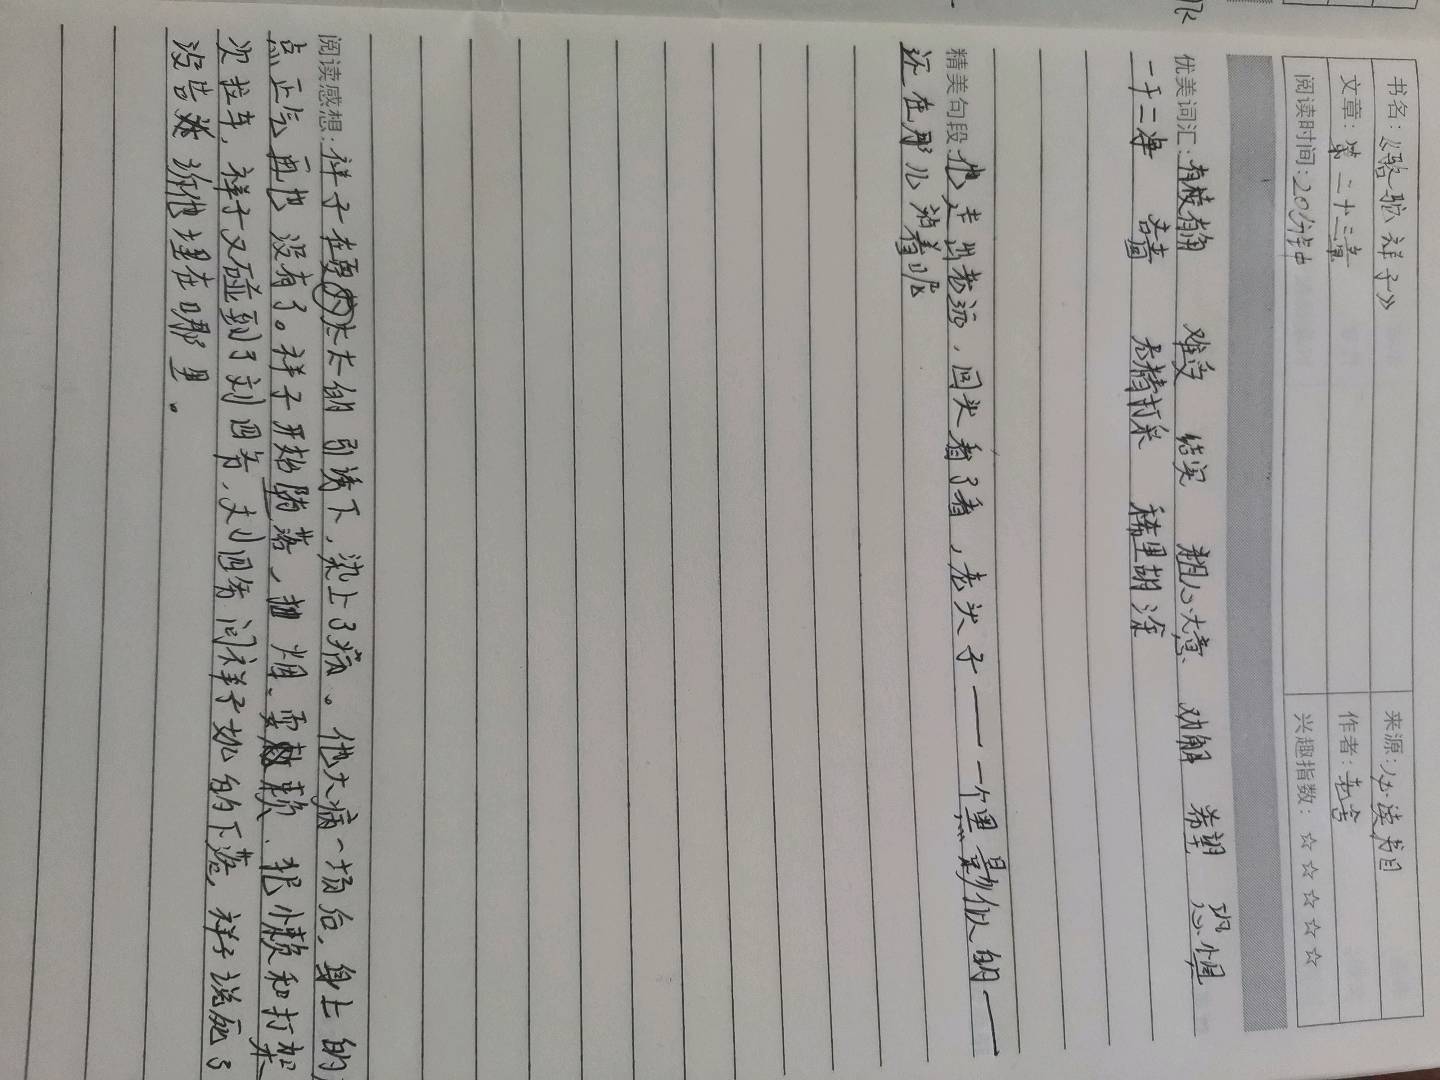 书名:《骆驼祥子》 来源:必读书目
文章:第二十三章 作者:老舍
阅读时间:20分钟 兴趣指数:☆☆☆☆☆
优美词汇:有棱有角 难受 结实 粗心大意 劝解 希望 恐惧
一干二净 无精打采 稀里胡涂
精美句段:他走出老远,回头看了看,老头子——一个黑影似的——
还在那儿站着呢
阅读感想:祥子在夏太太的引诱下,染上了病。他大病一场后,身上的
点正气再也没有了。祥子开始堕落,抽烟、耍赖、犯懒和打架
次拉车,祥子又碰到了刘四爷,刘四爷问祥子妞的下落,祥子说死了
没告诉他埋在哪里。